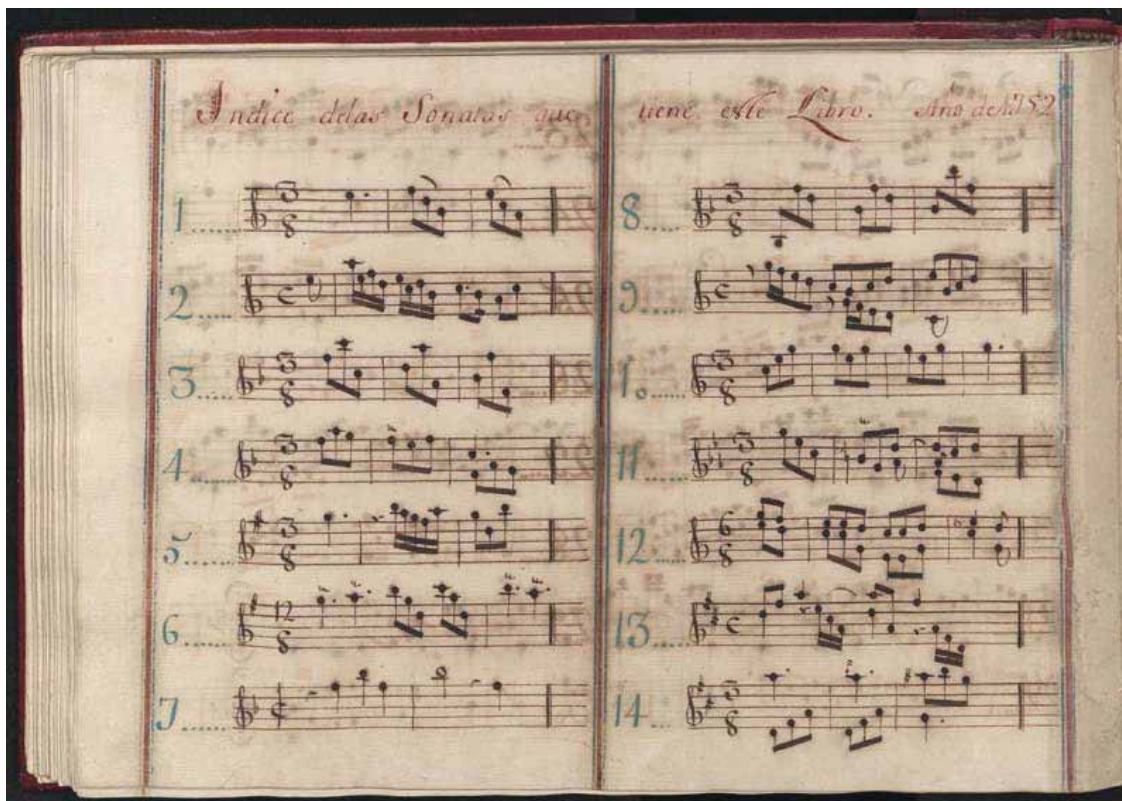 Indice delas Sonatas que tiene este Libro. Año de 1752
1......
2......
3......
4......
5......
6......
7......
8.....
9......
10.....
11.....
12.....
13.....
14...